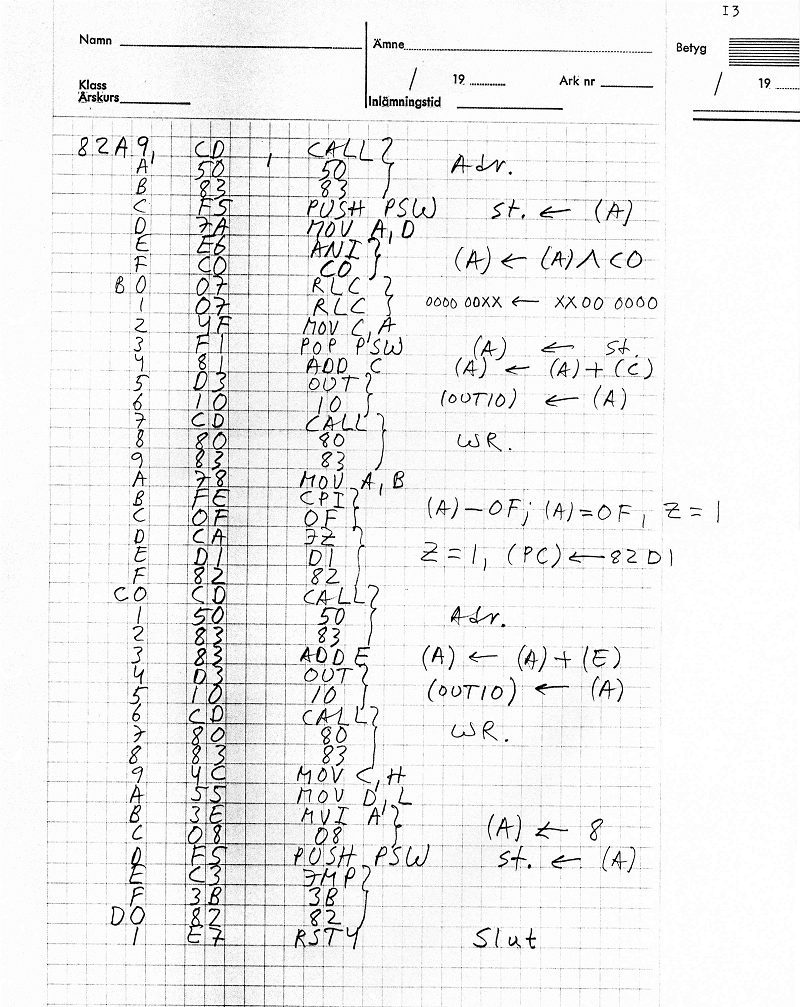 I3
Namn Ämne Betyg
/ 19 Ark nr / 19
Klass
Årskurs Inlämningstid
82A9, CD , CALL } Adr.
A 50 50
B 83 83
C F5 PUSH PSW st. ← (A)
D 7A MOV A,D
E E6 ANI } (A) ← (A) ∧ C0
F C0 C0
B0 07 RLC }
1 07 RLC 0000 00XX ← XX00 0000
2 4F MOV C,A
3 F1 POP PSW (A) ← st.
4 81 ADD C (A) ← (A)+(C)
5 D3 OUT }
6 10 10 (OUT10) ← (A)
7 CD CALL }
8 80 80 WR.
9 83 83
A 78 MOV A,B
B FE CPI }
C 0F 0F (A)-0F; (A)=0F, Z=1
D CA JZ }
E D1 D1 Z=1, (PC)←82D1
F 82 82
C0 CD CALL }
1 50 50 Adr.
2 83 83
3 83 ADD E (A) ← (A)+(E)
4 D3 OUT }
5 10 10 (OUT10) ← (A)
6 CD CALL }
7 80 80 WR.
8 83 83
9 4C MOV C,H
A 55 MOV D,L
B 3E MVI A }
C 08 08 (A) ← 8
D F5 PUSH PSW st. ← (A)
E C3 JMP }
F 3B 3B
D0 82 82
1 E7 RST4 Slut